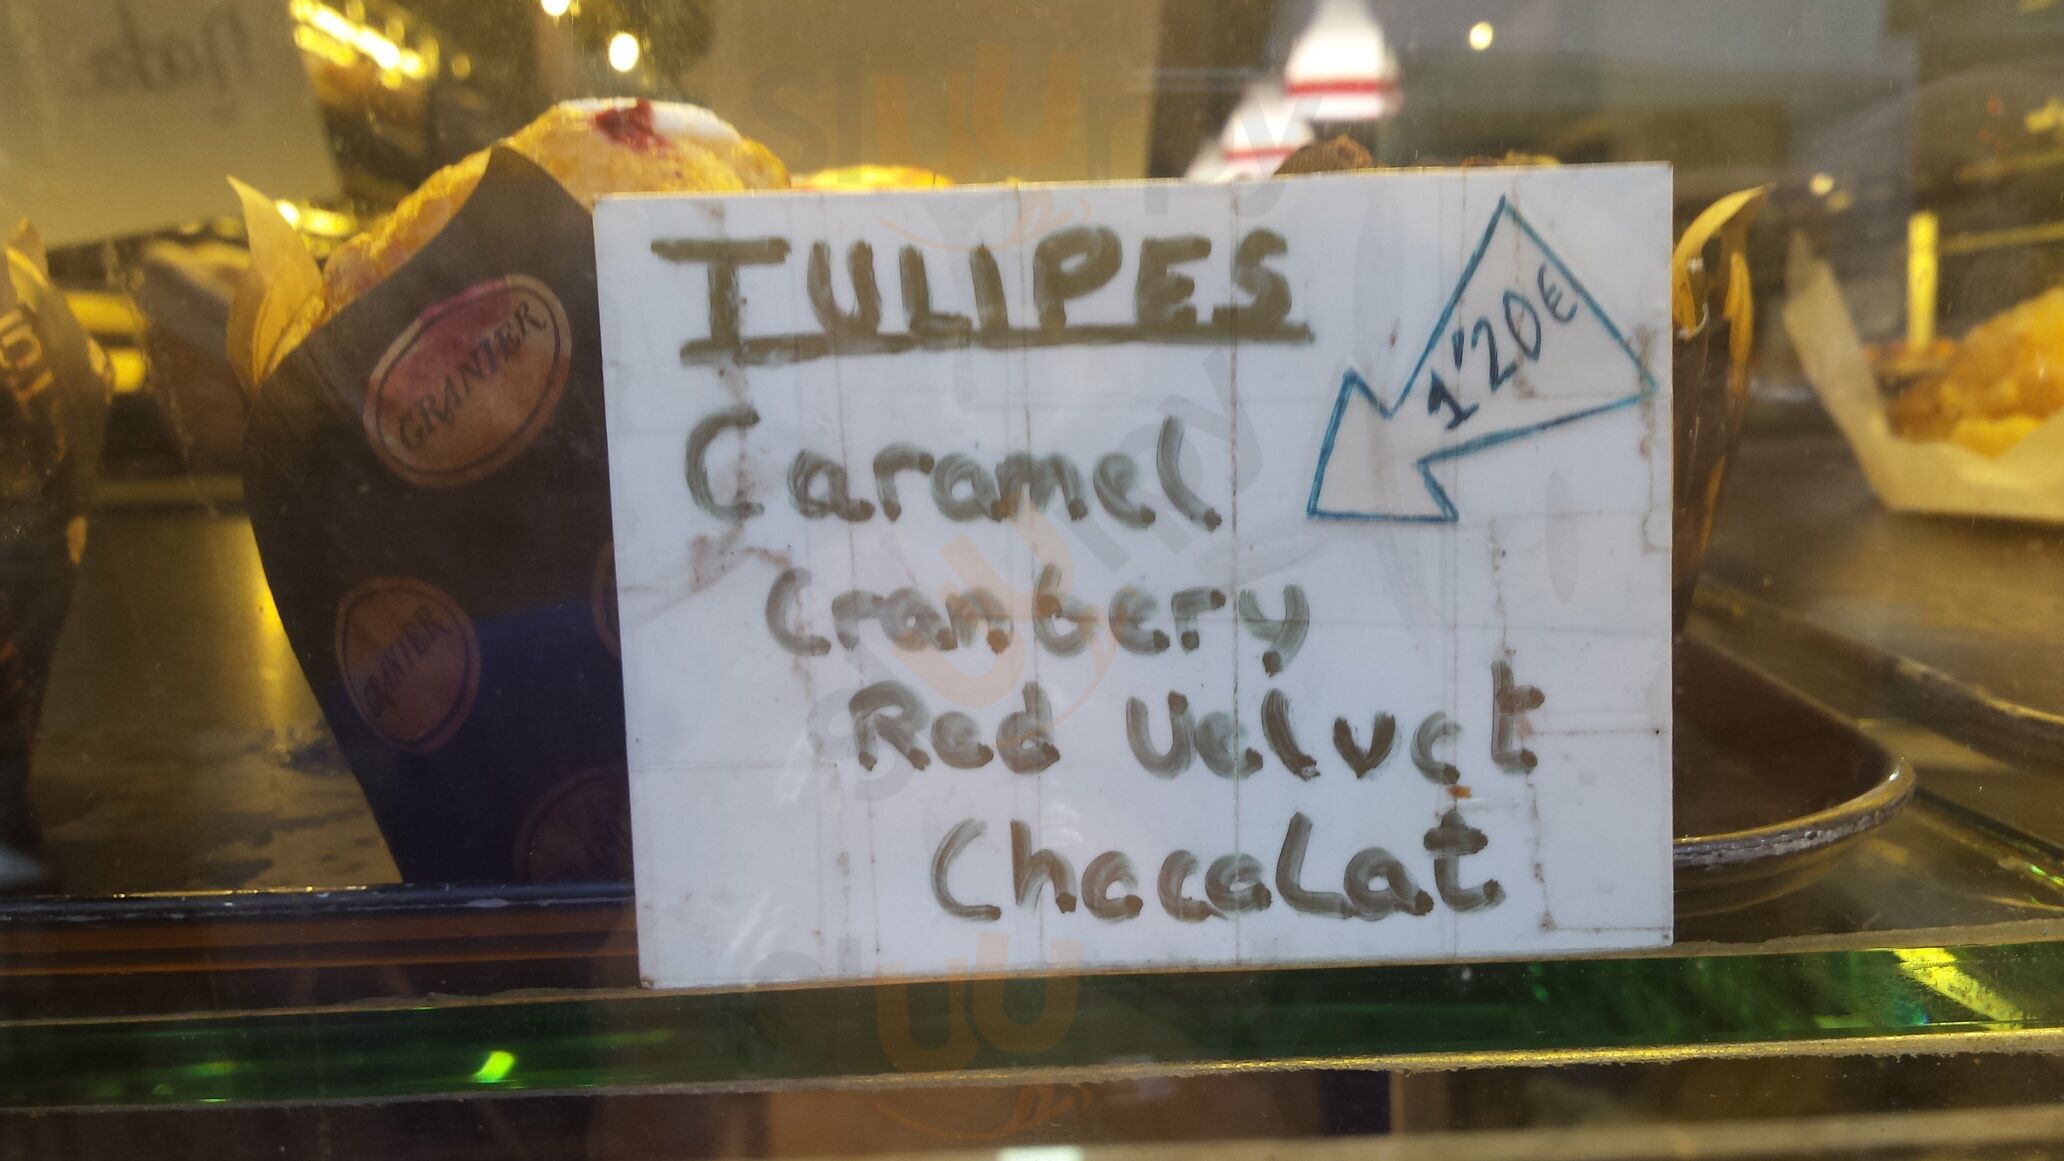 TULIPES
1'20€
Caramel
Cranbery
Red Velvet
Chocolat
GRANIER
GRANIER
Slurrpy